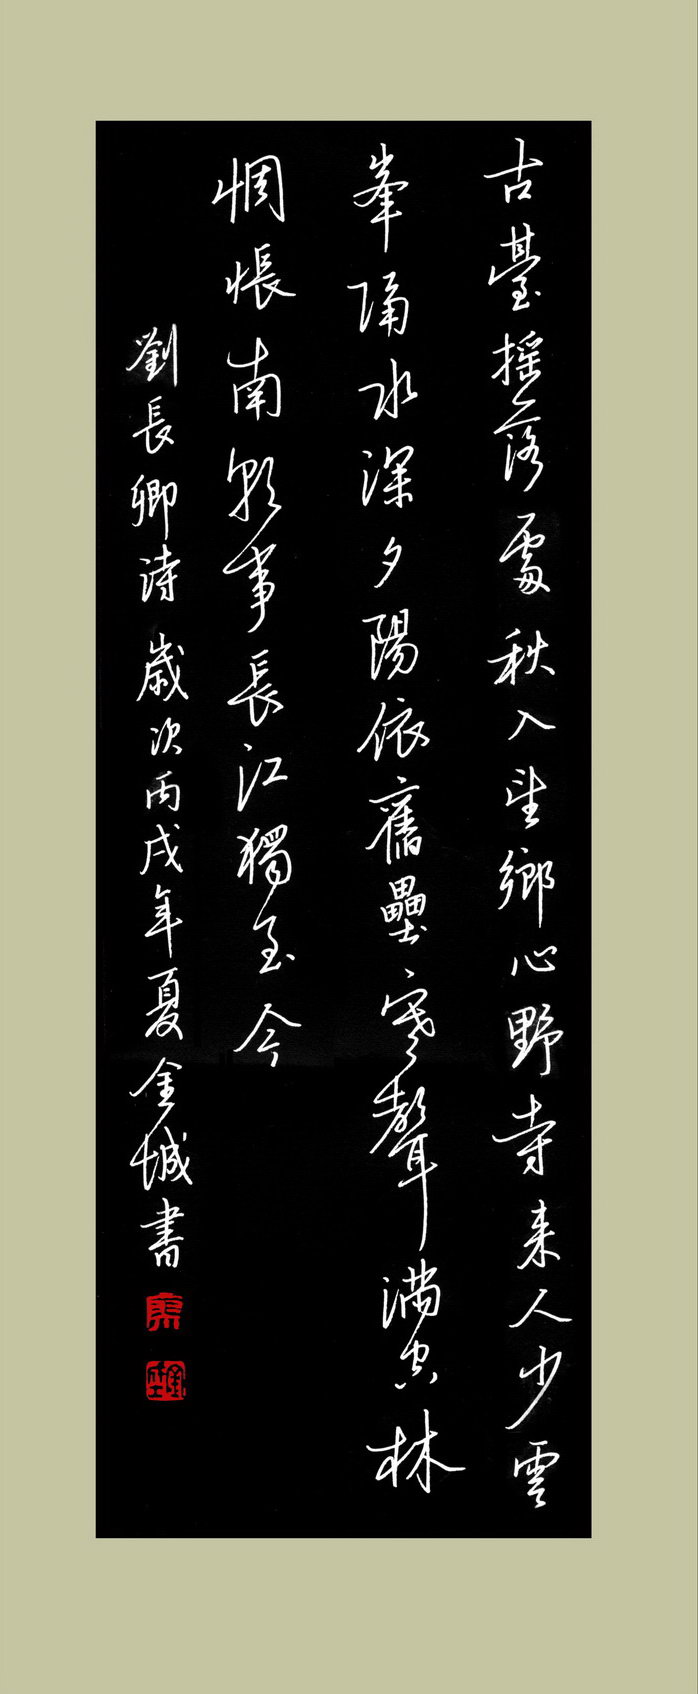 古臺摇落處秋入望鄉心野寺来人少雲
峯隔水深夕陽依舊壘寒聲滿空林
惆悵南朝事長江獨至今
劉長卿詩歲次丙戌年夏金城書